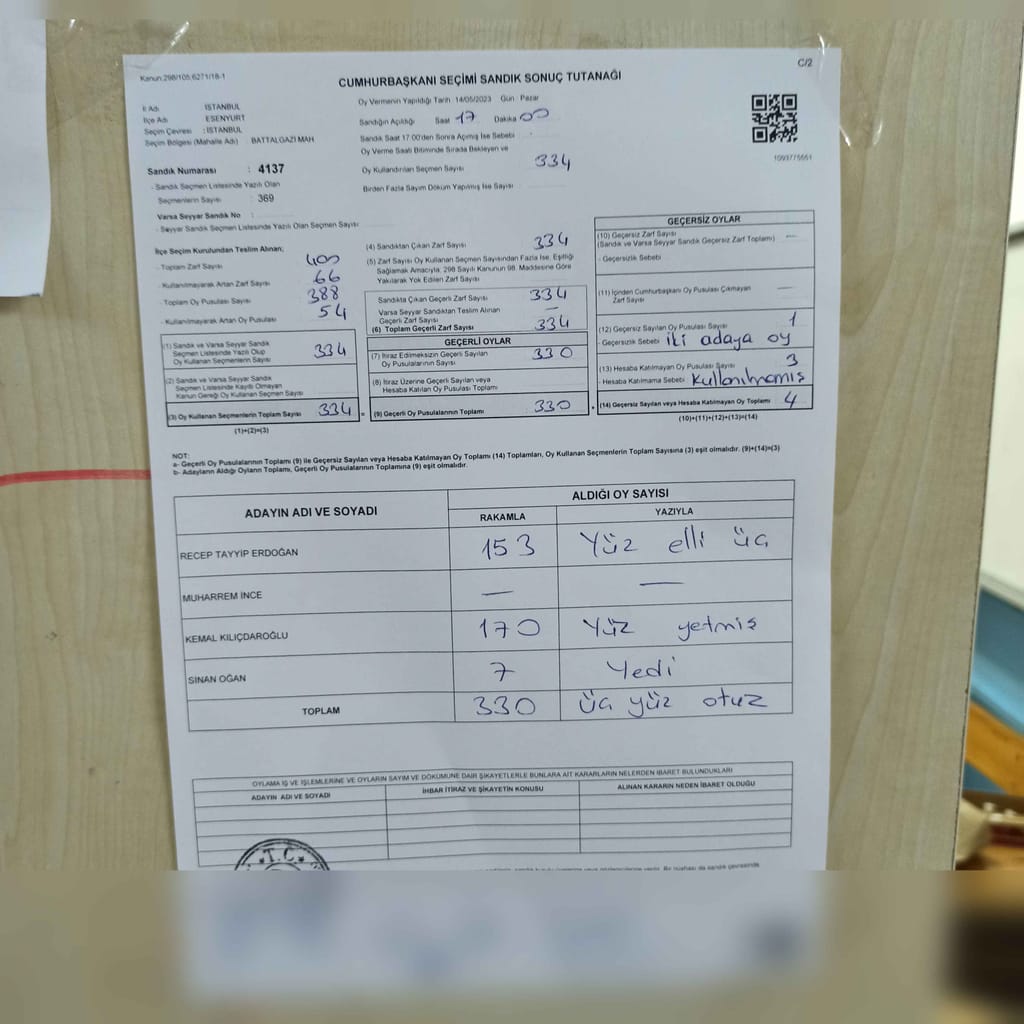 Kanun:298/105;6271/18-1
C/2
CUMHURBAŞKANI SEÇİMİ SANDIK SONUÇ TUTANAĞI
İl Adı İSTANBUL
İlçe Adı ESENYURT
Seçim Çevresi : İSTANBUL
Seçim Bölgesi (Mahalle Adı) BATTALGAZİ MAH
Sandık Numarası : 4137
- Sandık Seçmen Listesinde Yazılı Olan
Seçmenlerin Sayısı : 369
Varsa Seyyar Sandık No :
- Seyyar Sandık Seçmen Listesinde Yazılı Olan Seçmen Sayısı
Oy Vermenin Yapıldığı Tarih 14/05/2023 Gün Pazar
Sandığın Açıldığı Saat 17 Dakika 00
Sandık Saat 17:00'den Sonra Açımış İse Sebebi :
Oy Verme Saati Bitiminde Sırada Bekleyen ve
Oy Kullandırılan Seçmen Sayısı 334
Birden Fazla Sayım Döküm Yapılmış İse Sayısı
1093775551
İlçe Seçim Kurulundan Teslim Alınan;
- Toplam Zarf Sayısı 400
- Kullanılmayarak Artan Zarf Sayısı 66
- Toplam Oy Pusulası Sayısı 388
- Kullanılmayarak Artan Oy Pusulası 54
(1) Sandık ve Varsa Seyyar Sandık
Seçmen Listesinde Yazılı Olup
Oy Kullanan Seçmenlerin Sayısı 334
(2) Sandık ve Varsa Seyyar Sandık
Seçmen Listesinde Kayıtlı Olmayan
Kanun Gereği Oy Kullanan Seçmen Sayısı
(3) Oy Kullanan Seçmenlerin Toplam Sayısı 334 =
(1)+(2)=(3)
(4) Sandıktan Çıkan Zarf Sayısı 334
(5) Zarf Sayısı Oy Kullanan Seçmen Sayısından Fazla İse, Eşitliği
Sağlamak Amacıyla, 298 Sayılı Kanunun 98. Maddesine Göre
Yakılarak Yok Edilen Zarf Sayısı
Sandıkta Çıkan Geçerli Zarf Sayısı 334
Varsa Seyyar Sandıktan Teslim Alınan
Geçerli Zarf Sayısı —
(6) Toplam Geçerli Zarf Sayısı 334
GEÇERLİ OYLAR
(7) İtiraz Edilmeksizin Geçerli Sayılan
Oy Pusulalarının Sayısı 330
(8) İtiraz Üzerine Geçerli Sayılan veya
Hesaba Katılan Oy Pusulası Toplamı
(9) Geçerli Oy Pusulalarının Toplamı 330 +
GEÇERSİZ OYLAR
(10) Geçersiz Zarf Sayısı —
(Sandık ve Varsa Seyyar Sandık Geçersiz Zarf Toplamı)
- Geçersizlik Sebebi
(11) İçinden Cumhurbaşkanı Oy Pusulası Çıkmayan —
Zarf Sayısı
(12) Geçersiz Sayılan Oy Pusulası Sayısı 1
- Geçersizlik Sebebi iki adaya oy
(13) Hesaba Katılmayan Oy Pusulası Sayısı 3
- Hesaba Katılmama Sebebi Kullanılmamış
(14) Geçersiz Sayılan veya Hesaba Katılmayan Oy Toplamı 4
(10)+(11)+(12)+(13)=(14)
NOT:
a- Geçerli Oy Pusulalarının Toplamı (9) ile Geçersiz Sayılan veya Hesaba Katılmayan Oy Toplamı (14) Toplamları, Oy Kullanan Seçmenlerin Toplam Sayısına (3) eşit olmalıdır. (9)+(14)=(3)
b- Adayların Aldığı Oyların Toplamı, Geçerli Oy Pusulalarının Toplamına (9) eşit olmalıdır.
ADAYIN ADI VE SOYADI
ALDIĞI OY SAYISI
RAKAMLA YAZIYLA
RECEP TAYYİP ERDOĞAN 153 Yüz elli üç
MUHARREM İNCE — —
KEMAL KILIÇDAROĞLU 170 Yüz yetmiş
SİNAN OĞAN 7 Yedi
TOPLAM 330 üç yüz otuz
OYLAMA İŞ VE İŞLEMLERİNE VE OYLARIN SAYIM VE DÖKÜMÜNE DAİR ŞİKAYETLERLE BUNLARA AİT KARARLARIN NELERDEN İBARET BULUNDUKLARI
ADAYIN ADI VE SOYADI İHBAR İTİRAZ VE ŞİKAYETİN KONUSU ALINAN KARARIN NEDEN İBARET OLDUĞU
T.C.